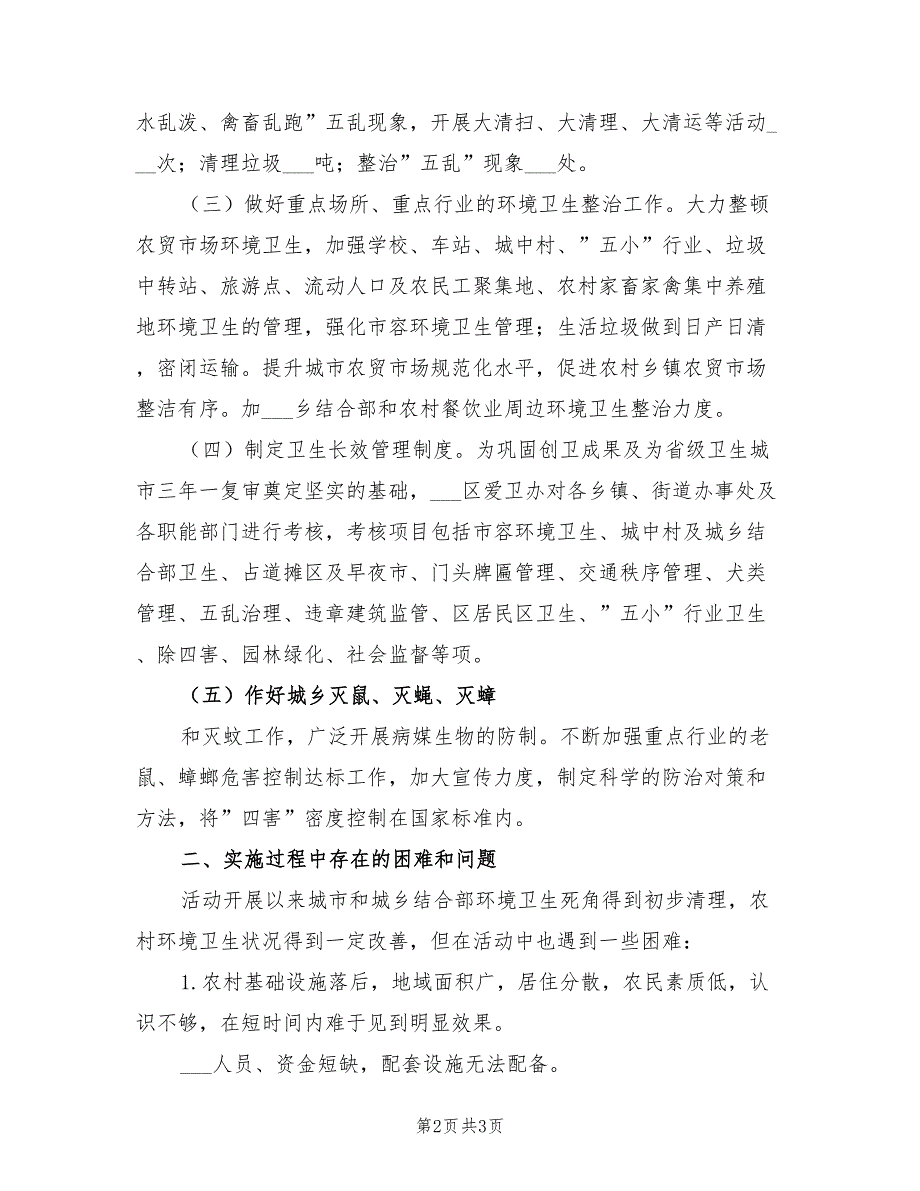 水乱泼、禽畜乱跑”五乱现象，开展大清扫、大清理、大清运等活动_
__次；清理垃圾___吨；整治”五乱”现象___处。
（三）做好重点场所、重点行业的环境卫生整治工作。大力整顿
农贸市场环境卫生，加强学校、车站、城中村、”五小”行业、垃圾
中转站、旅游点、流动人口及农民工聚集地、农村家畜家禽集中养殖
地环境卫生的管理，强化市容环境卫生管理；生活垃圾做到日产日清
，密闭运输。提升城市农贸市场规范化水平，促进农村乡镇农贸市场
整洁有序。加___乡结合部和农村餐饮业周边环境卫生整治力度。
（四）制定卫生长效管理制度。为巩固创卫成果及为省级卫生城
市三年一复审奠定坚实的基础，___区爱卫办对各乡镇、街道办事处及
各职能部门进行考核，考核项目包括市容环境卫生、城中村及城乡结
合部卫生、占道摊区及早夜市、门头牌匾管理、交通秩序管理、犬类
管理、五乱治理、违章建筑监管、区居民区卫生、”五小”行业卫生
、除四害、园林绿化、社会监督等项。
（五）作好城乡灭鼠、灭蝇、灭蟑
和灭蚊工作，广泛开展病媒生物的防制。不断加强重点行业的老
鼠、蟑螂危害控制达标工作，加大宣传力度，制定科学的防治对策和
方法，将”四害”密度控制在国家标准内。
二、实施过程中存在的困难和问题
活动开展以来城市和城乡结合部环境卫生死角得到初步清理，农
村环境卫生状况得到一定改善，但在活动中也遇到一些困难：
1.农村基础设施落后，地域面积广，居住分散，农民素质低，认
识不够，在短时间内难于见到明显效果。
___人员、资金短缺，配套设施无法配备。
第2页共3页